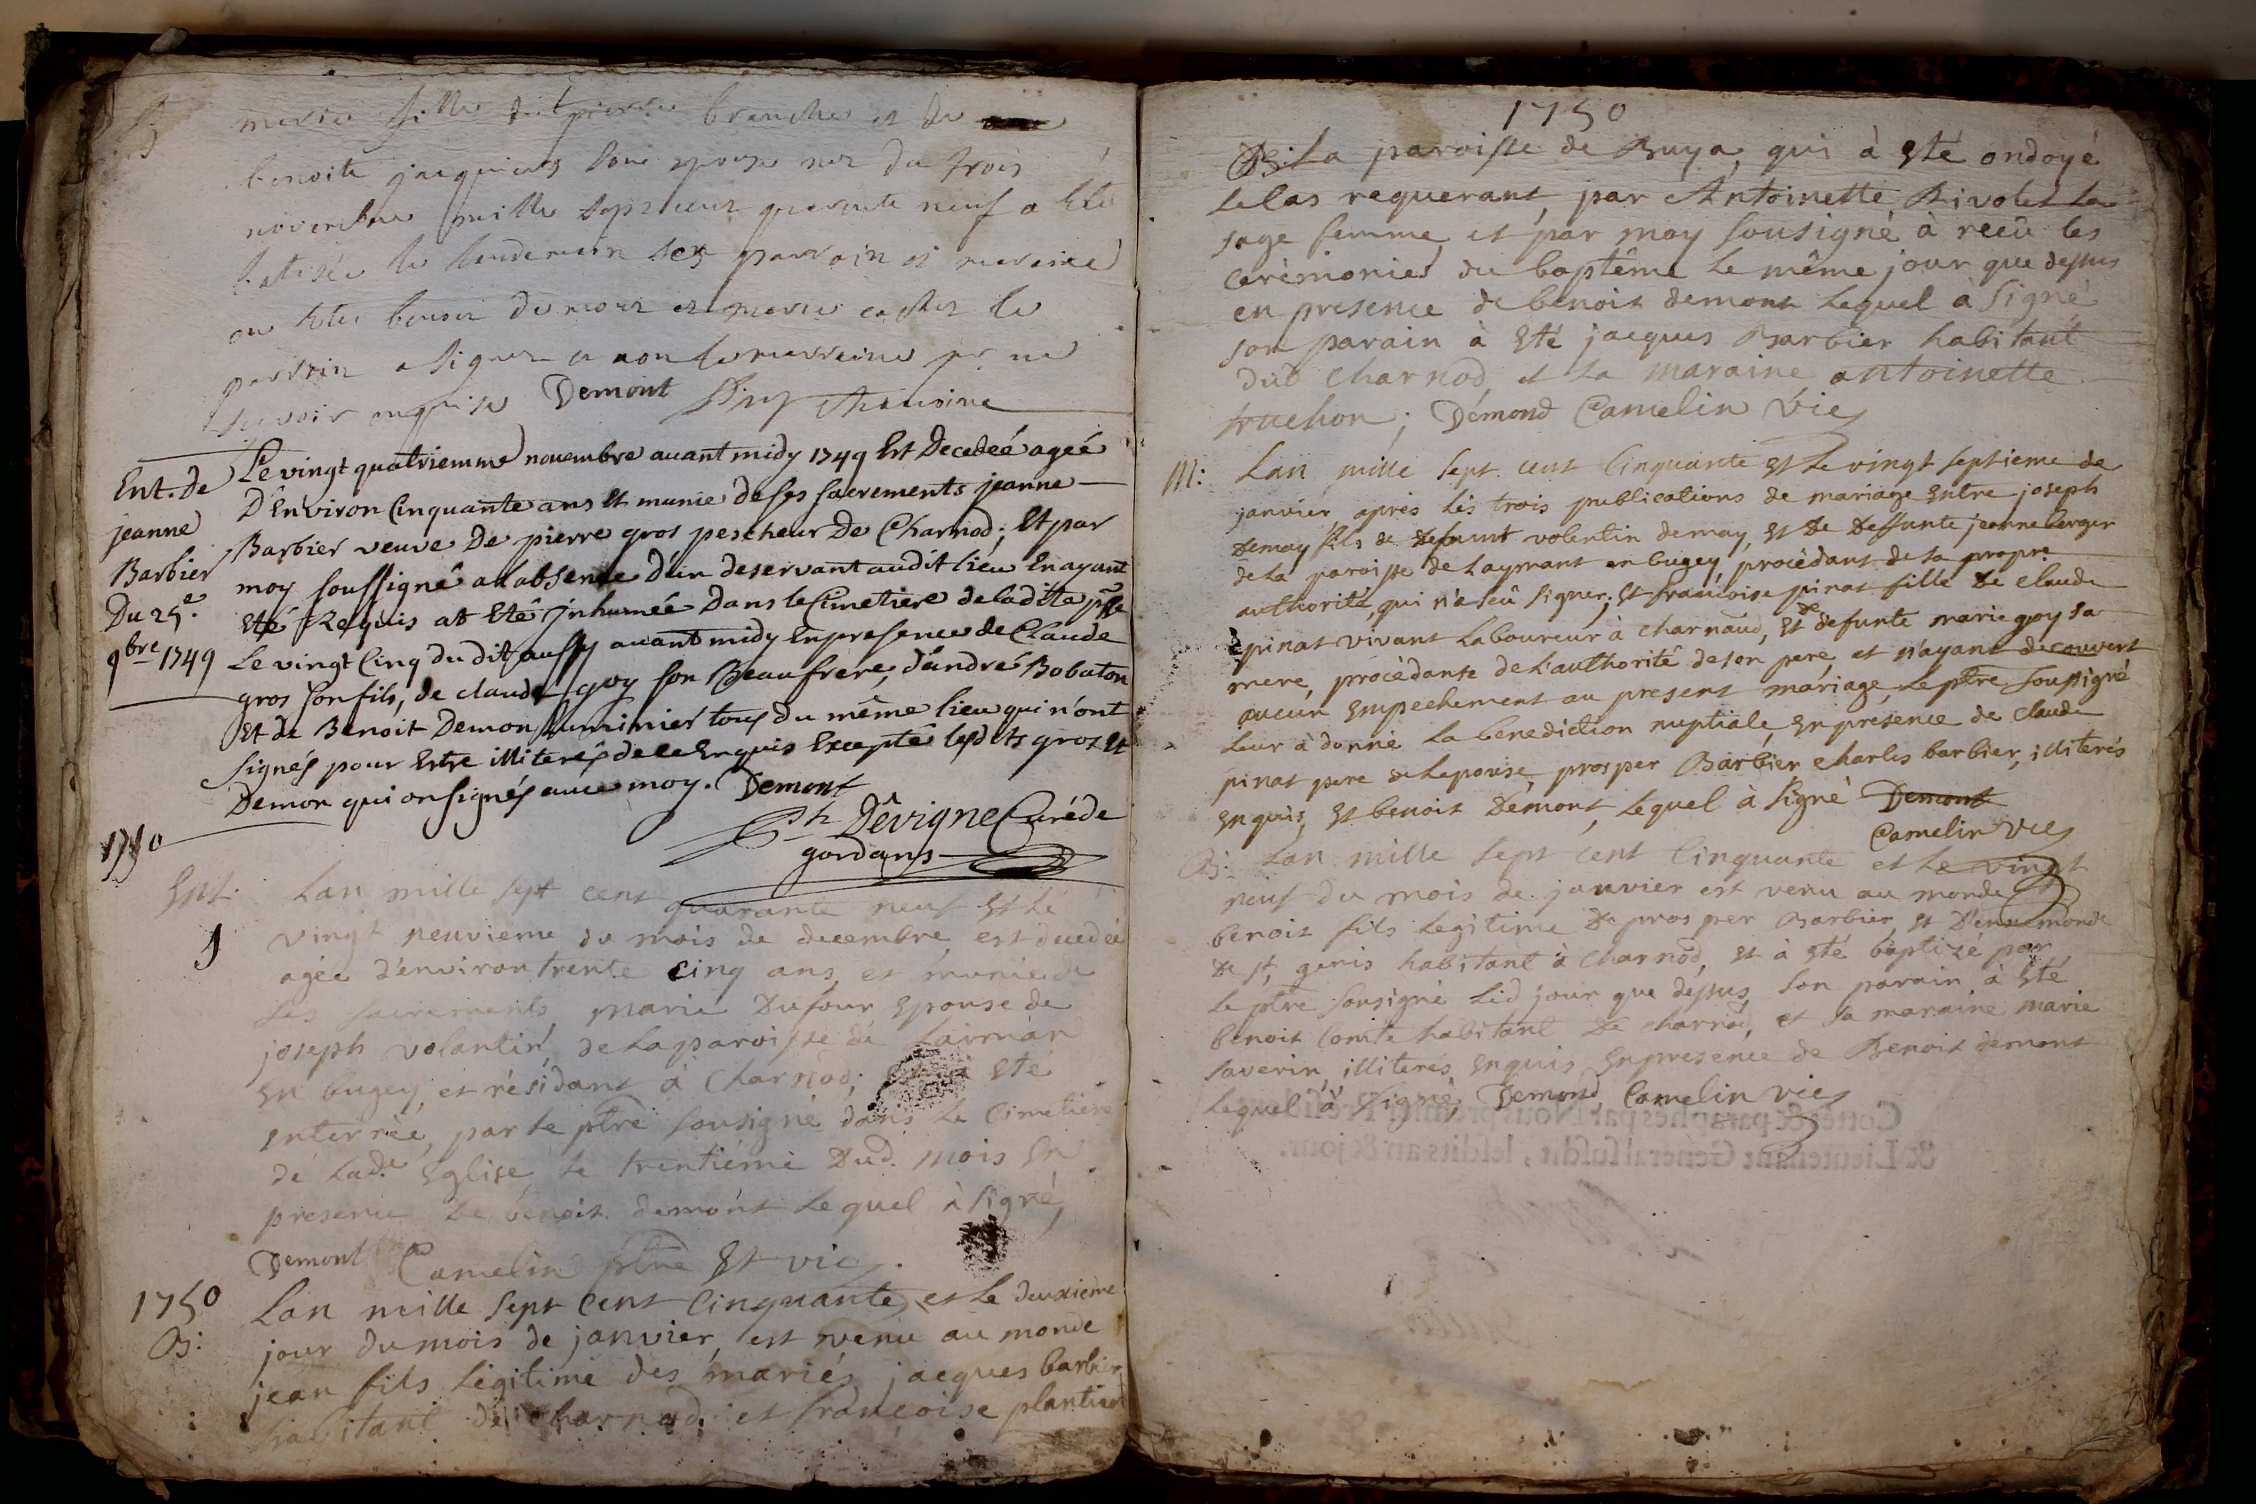 B
marie fille de pierre branche et de
benoite jacquient son epouse nez du trois
novembre mille sept cent quarante neuf a été
batisée le lendemain ses parrain et mareine
on étés benoit demont et marie
parrin a signer et non la marreine pr ne
sçavoir enquise Demont
Ent. de
jeanne
Barbier
Du 25e.
9bre 1749
Le vingt quatriemme novembre auant midy 1749 Est Decedeé ageé
D'Environ Cinquante ans et munie de ses sacrements jeanne
Barbier veuve De pierre gros pescheur De Charnod; Et par
moy soussigné a l'absence d'un deservant audit lieu En ayant
Eté Requis at Eté Jnhumée Dans le Cimetiere de laditte psse
Le vingt Cinq du dit aussy auant midy En presence de Claude
gros son fils, de claude goy son Beaufrere, d'andré Bobaton
Et de Benoit Demon Luminier tous du même lieu qui n'ont
signés pour Estre illiterés de ce Enquis Excepté lesdits gros et
Demon qui on signés auec moy. Demont
Dêvigne Curé de
gordans
1750
Ent.
Lan mille sept cent quarante neuf Et le
vingt neuvieme du mois de decembre est decedée
agée d'environ trente cinq ans, et munie de
ses sacrements marie Dufour Epouse de
joseph volantin, de la paroisse de Laiman
En bugey, et résidant à Charnod; et à Eté
Enterrée, par le ptre sousigné dans le Cimetiere
de lade. Eglise le trentiéme Dud. mois En
presence de benoit demont lequel à signé,
Demont Camelin ptre Et vic
1750
B:
Lan mille sept cent Cinquante, et le deuxieme
jour du mois de janvier, est venu au monde
jean fils légitime des mariés jacques barbier
habitant de charnod, et françoise plantier
1750
B: La paroisse de Ruya, qui à Eté ondoyé
le cas requerant, par Antoinette Rivolet la
sage femme, et par moy sousigné à reçû les
cerémonies du baptême le même jour que dessus
en presence de benoit demont lequel à signé
son parain à Eté jacques Barbier habitant
dud Charnod, et la maraine antoinette
truchon; Démond Camelin vic
M:
Lan mille sept cent Cinquante et le vingt septieme de
janvier après les trois publications de mariage Entre joseph
Demay fils de defunt volentin demay, Et De Deffunte jeanne berger
de la paroisse de Laymant en bugey, procédant de sa propre
authorité, qui n'a seû signer; Et françoise pinat fille de claude
pinat vivant Laboureur à charnaud, Et de defunte marie goy sa
mere, procédante de l'authorité de son pere, et n'ayant decouvert
aucun Empechement au present mariage, le ptre soussigné
leur à donné la benediction nuptiale, En presence de claude
pinat pere de Lepouse, prosper Barbier, charles barbier, illiterés
Enquis, Et benoit Demont, Lequel à signé Demont
Camelin vic
B:
Lan mille sept cent Cinquante et le vingt
neuf du mois de janvier est venu au monde
benoit fils legitime de prosper Barbier, Et D'ennemonde
de st, genis habitant à Charnod, Et à Eté baptizé par
le ptre sousigné lid jour que dessus, son parain à Eté
benoit Comte habitant de charnod, et sa maraine marie
saverin, illiterés Enquis En presence de Benoit démont
lequel à signé; Demond, Camelin vic
Cottés & paraphés par Nous premier Président
& Lieutenant Général susdit, lesdits an & jour.